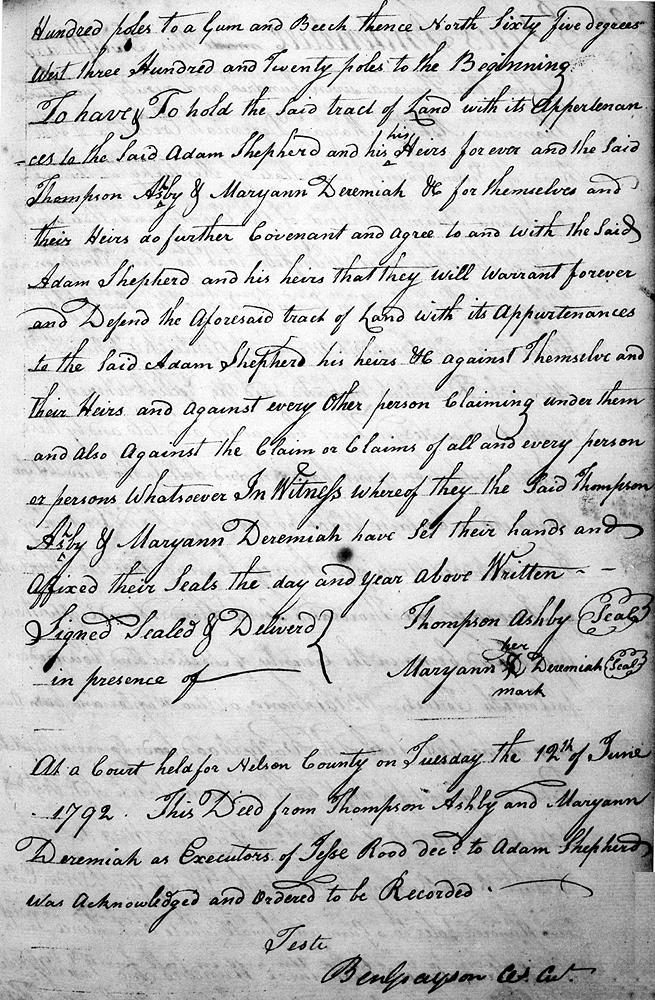 Hundred poles to a Gum and Beech thence North Sixty five degrees
West three Hundred and Twenty poles to the Beginning
To have & To hold the said tract of Land with its Appertenan
=ces to the Said Adam Shepherd and his his Heirs forever and the Said
Thompson Ashby & Maryann Deremiah &c for themselves and
their Heirs do further Covenant and agree to and with the Said
Adam Shepherd and his heirs that they will warrant forever
and Defend the Aforesaid tract of Land with its Appurtenances
to the Said Adam Shepherd his heirs &c against Themselve and
their Heirs and against every Other person Claiming under them
and also Against the Claim or Claims of all and every person
or persons Whatsoever In Witness whereof they the Said Thompson
Ashby & Maryann Deremiah have Set their hands and
Affixed their Seals the day and year above Written
Signed Sealed & Deliverd } Thompson Ashby Seal
in presence of Maryann her mark Deremiah Seal
At a Court held for Nelson County on Tuesday the 12th of June
1792. This Deed from Thompson Ashby and Maryann
Deremiah as Executors of Jesse Rood decd to Adam Shepherd
was Acknowledged and Ordered to be Recorded.
Teste
Ben Grayson Cl. Cur.